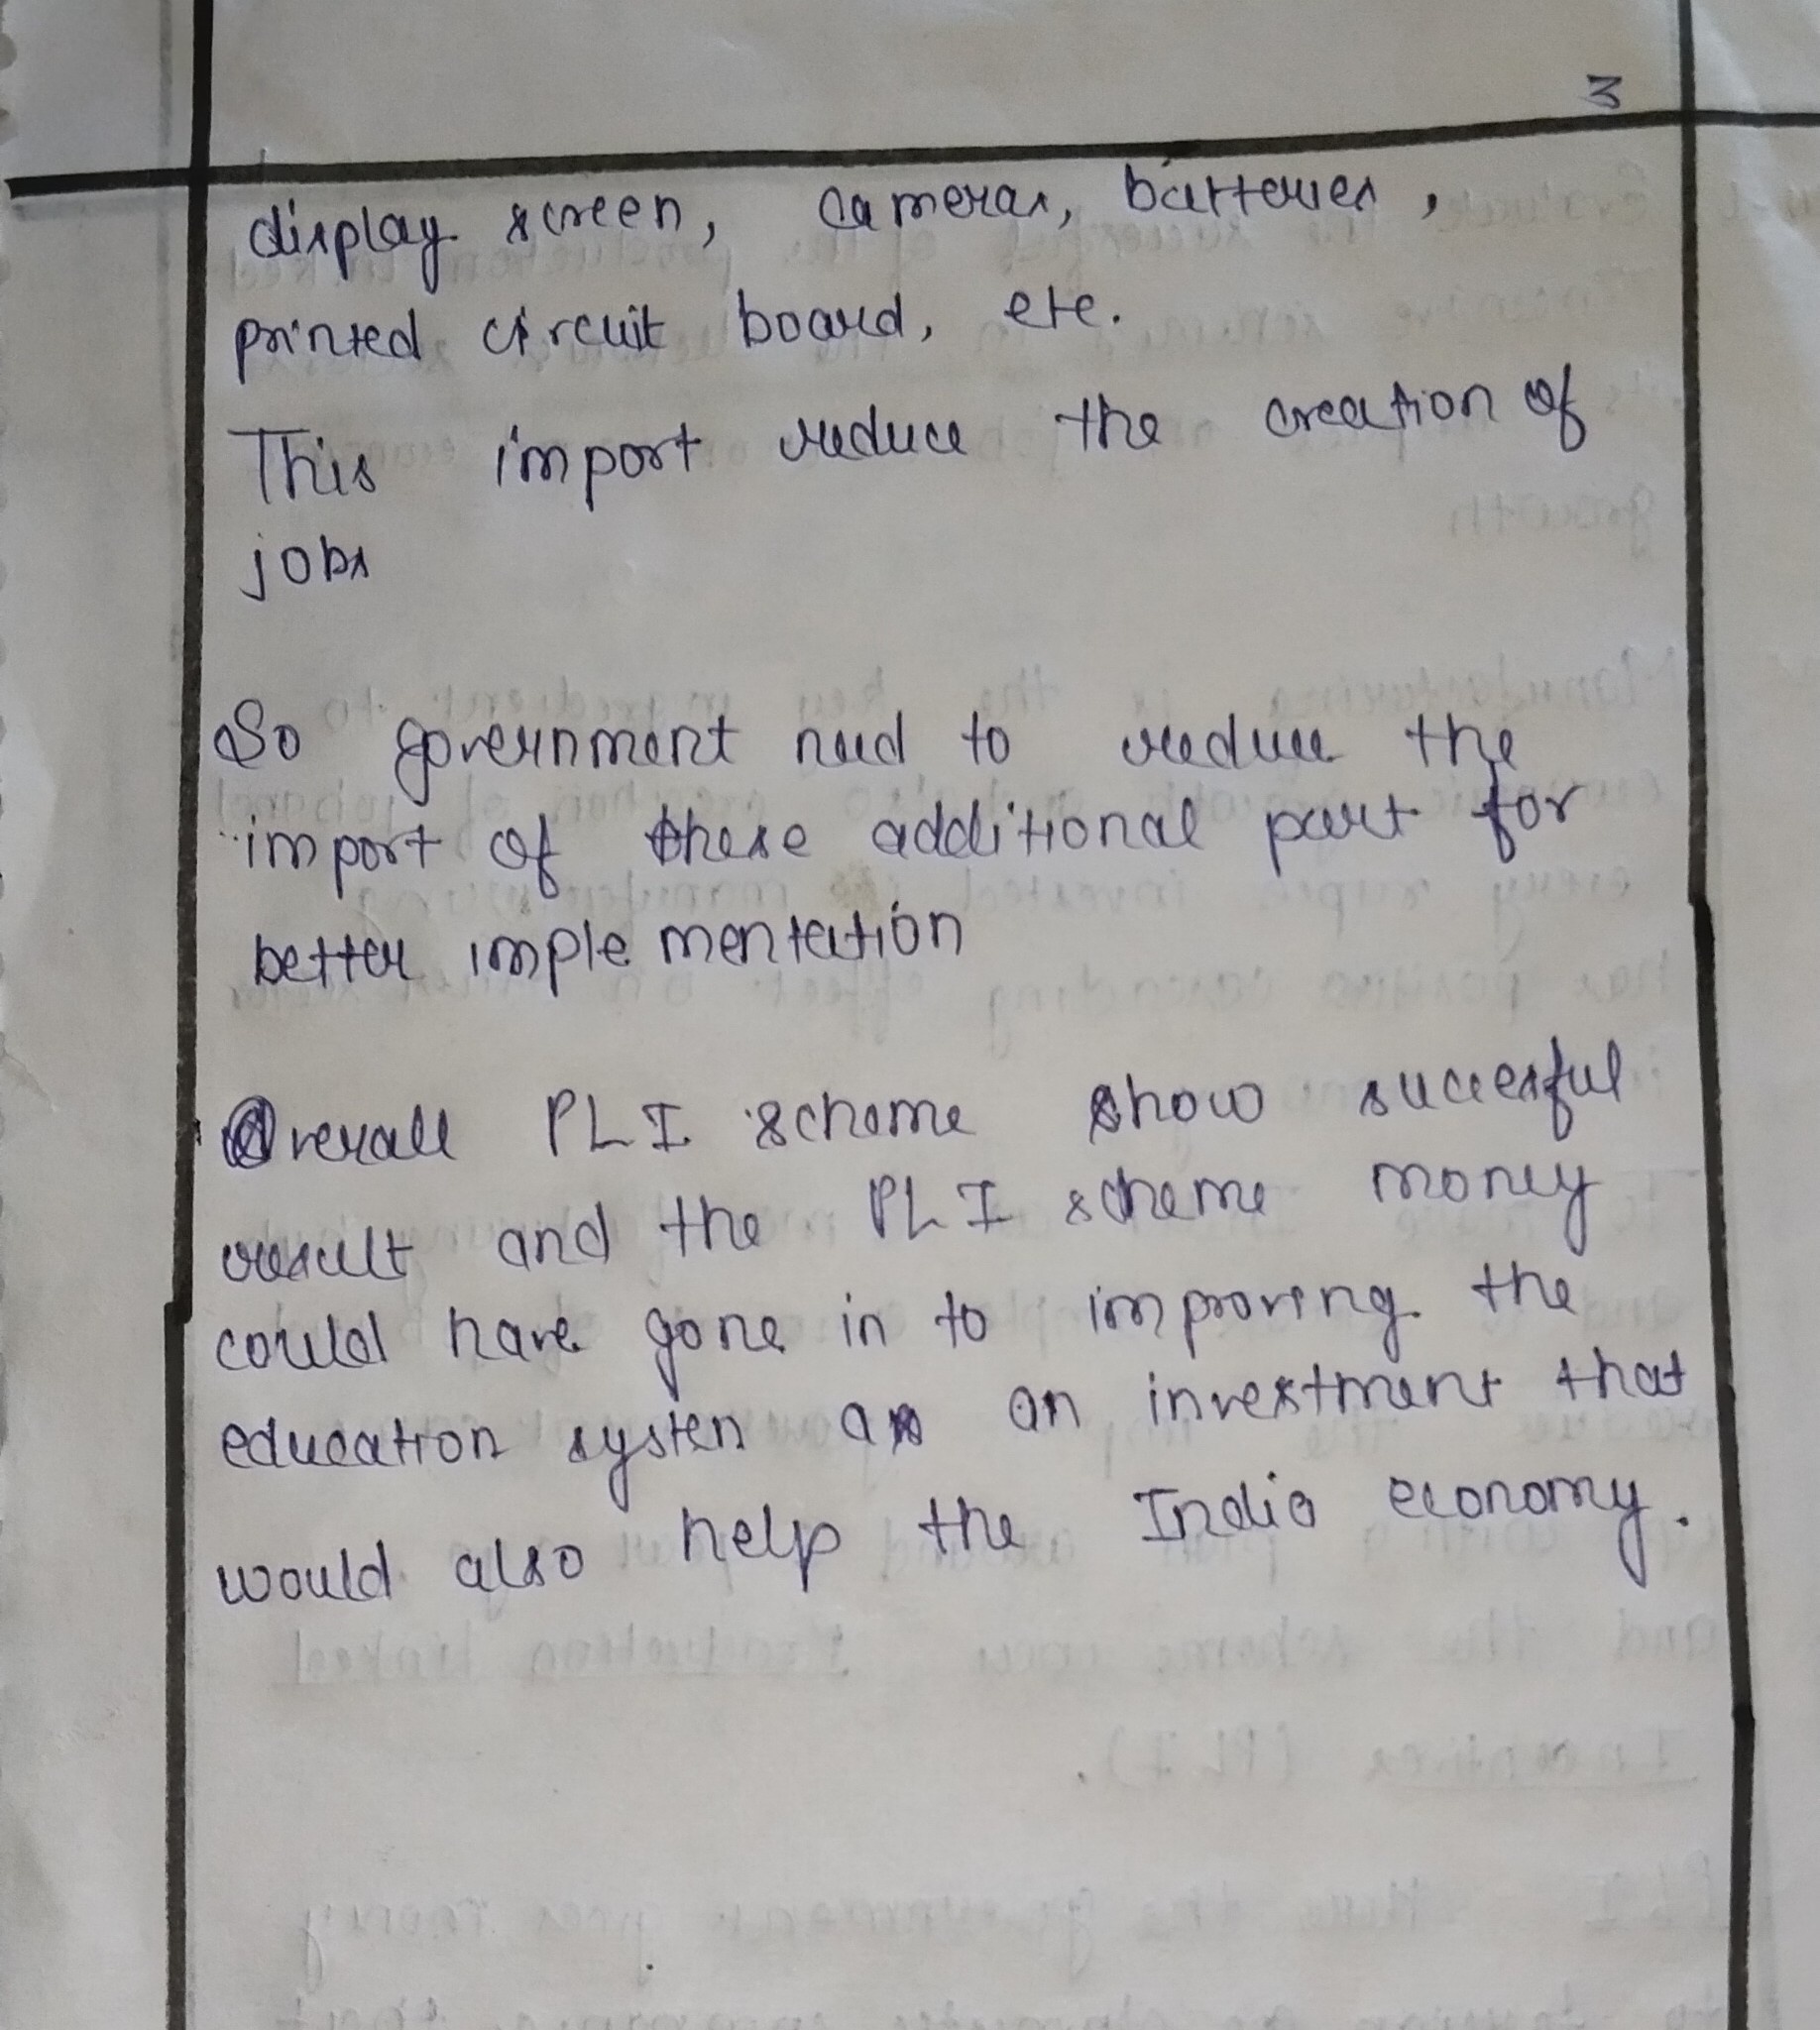 3
display screen, cameras, batteries,
printed circuit board, etc.
This import reduce the creation of
jobs
So government need to reduce the
import of these additional part for
better implementation
Overall PLI scheme show sucessful
result and the PLI scheme money
could have gone in to improving the
education system as an investment that
would also help the India economy.